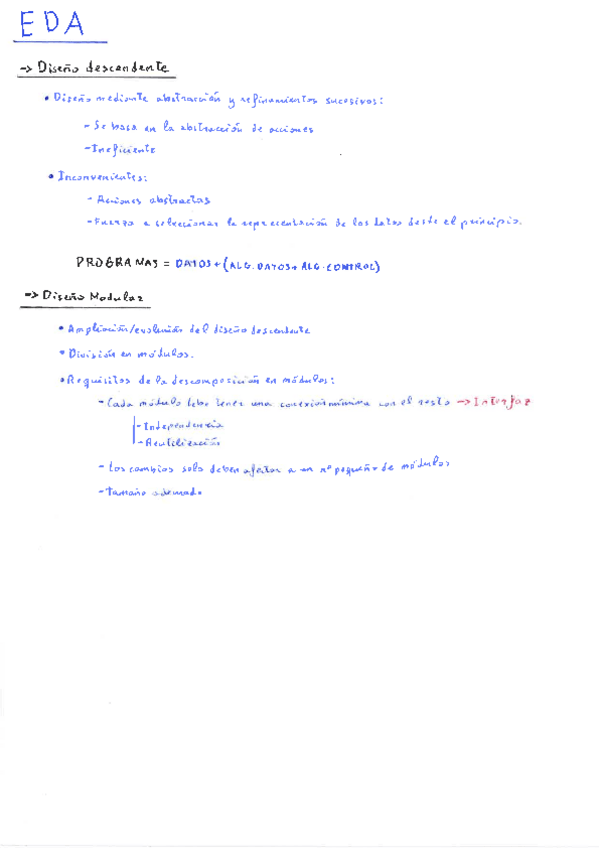 EDA
-> Diseño descendente
• Diseño mediante abstracción y refinamientos sucesivos:
- Se basa en la abstracción de acciones
- Ineficiente
• Inconvenientes:
- Acciones abstractas
- Fuerza a seleccionar la representación de los datos desde el principio.
PROGRAMAS = DATOS + (ALG. DATOS + ALG. CONTROL)
-> Diseño Modular
• Ampliación/evolución del diseño descendente
• División en módulos.
• Requisitos de la descomposición en módulos:
- Cada módulo debe tener una conexión mínima con el resto -> Interfaz
- Independencia
- Reutilización
- Los cambios solo deben afectar a un nº pequeño de módulos
- Tamaño adecuado